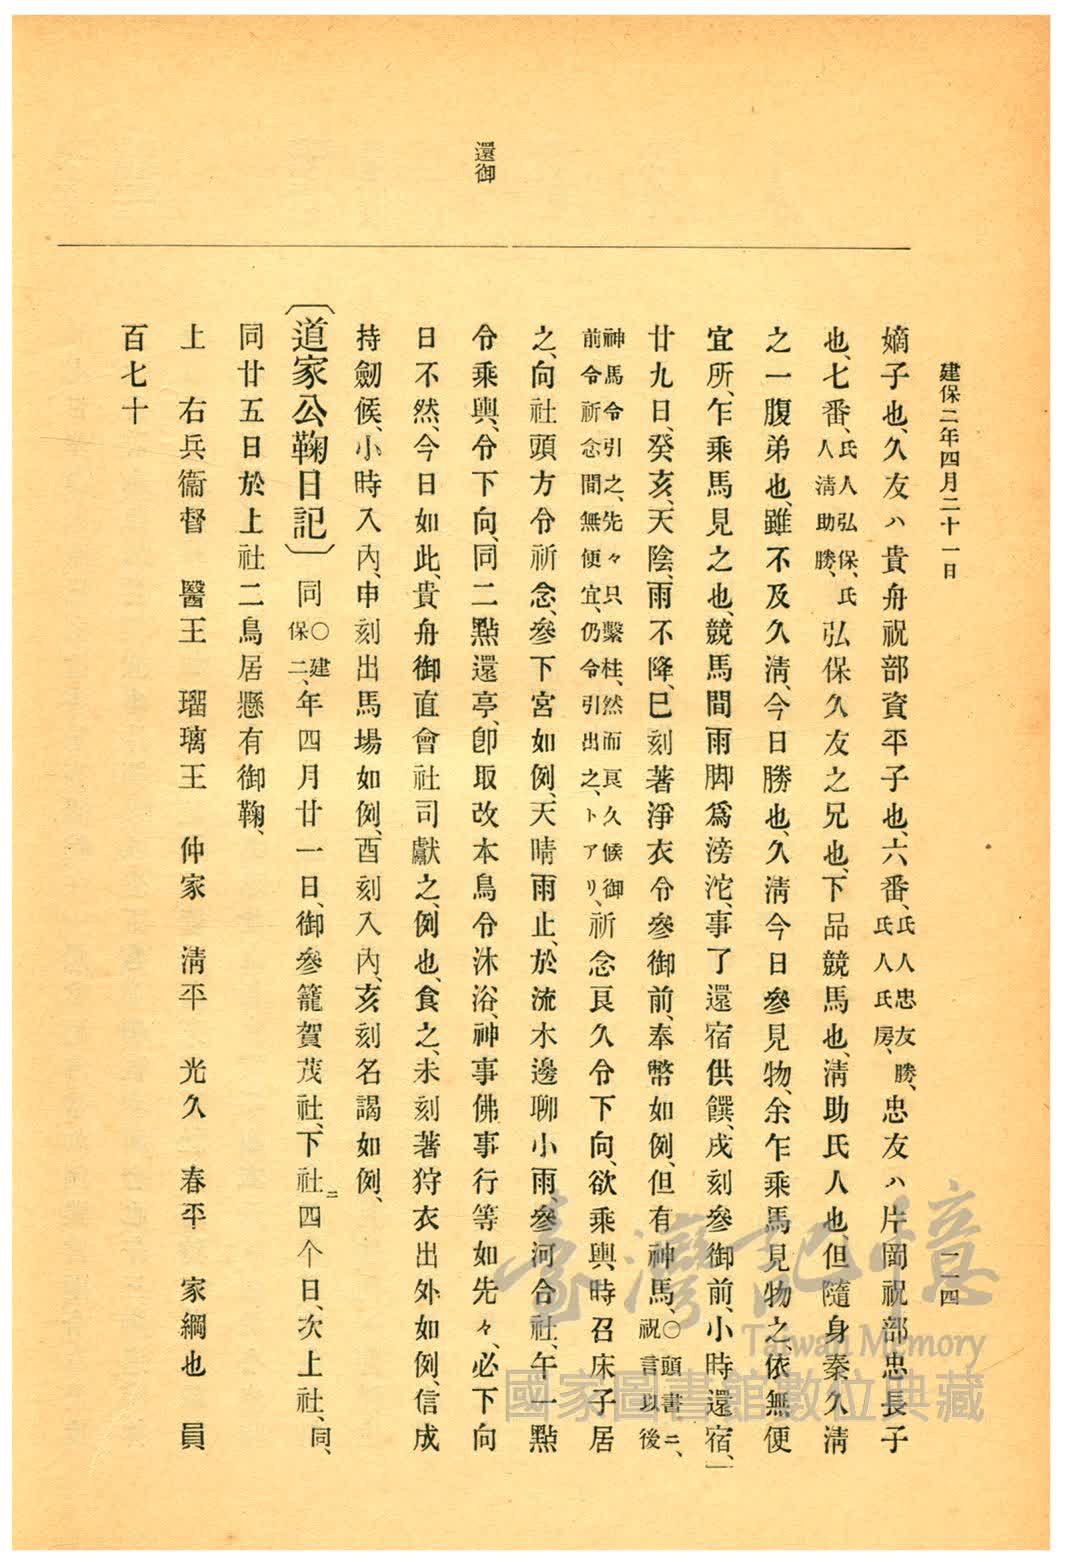 建保二年四月二十一日
二一四
還御
嫡子也、久友ハ貴舟祝部資平子也、六番、氏人忠友勝、氏人氏房、忠友ハ片岡祝部忠長子
也、七番、氏人弘保、氏人淸助勝、弘保久友之兄也、下品競馬也、淸助氏人也、但隨身秦久淸
之一腹弟也、雖不及久淸、今日勝也、久淸今日參見物、余乍乘馬見物之、依無便
宜所、乍乘馬見之也、競馬間雨脚爲滂沱、事了還宿供饌、戌刻參御前、小時還宿、」
廿九日、癸亥、天陰、雨不降、巳刻著淨衣令參御前、奉幣如例、但有神馬、〇頭書ニ、祝言以後
神馬令引之、先々只繫柱、然而良久候御前令祈念間無便宜、仍令引出之、トアリ、祈念良久令下向、欲乘輿、時召床子居
之、向社頭方令祈念、參下宮如例、天晴雨止、於流木邊聊小雨、參河合社、午一點
令乘輿、令下向、同二點還亭、卽取改本鳥令沐浴、神事佛事行等如先々、必下向
日不然、今日如此、貴舟御直會社司獻之、例也、食之、未刻著狩衣出外如例、信成
持劒候、小時入內、申刻出馬場如例、酉刻入內、亥刻名謁如例、
〔道家公鞠日記〕同〇建保二、年四月廿一日、御參籠賀茂社、下社ニ四个日、次上社、同、
同廿五日於上社二鳥居懸有御鞠、
上 右兵衞督 醫王 瑠璃王 仲家 淸平 光久 春平 家綱也 員
百七十
臺灣記憶
Taiwan Memory
國家圖書館數位典藏